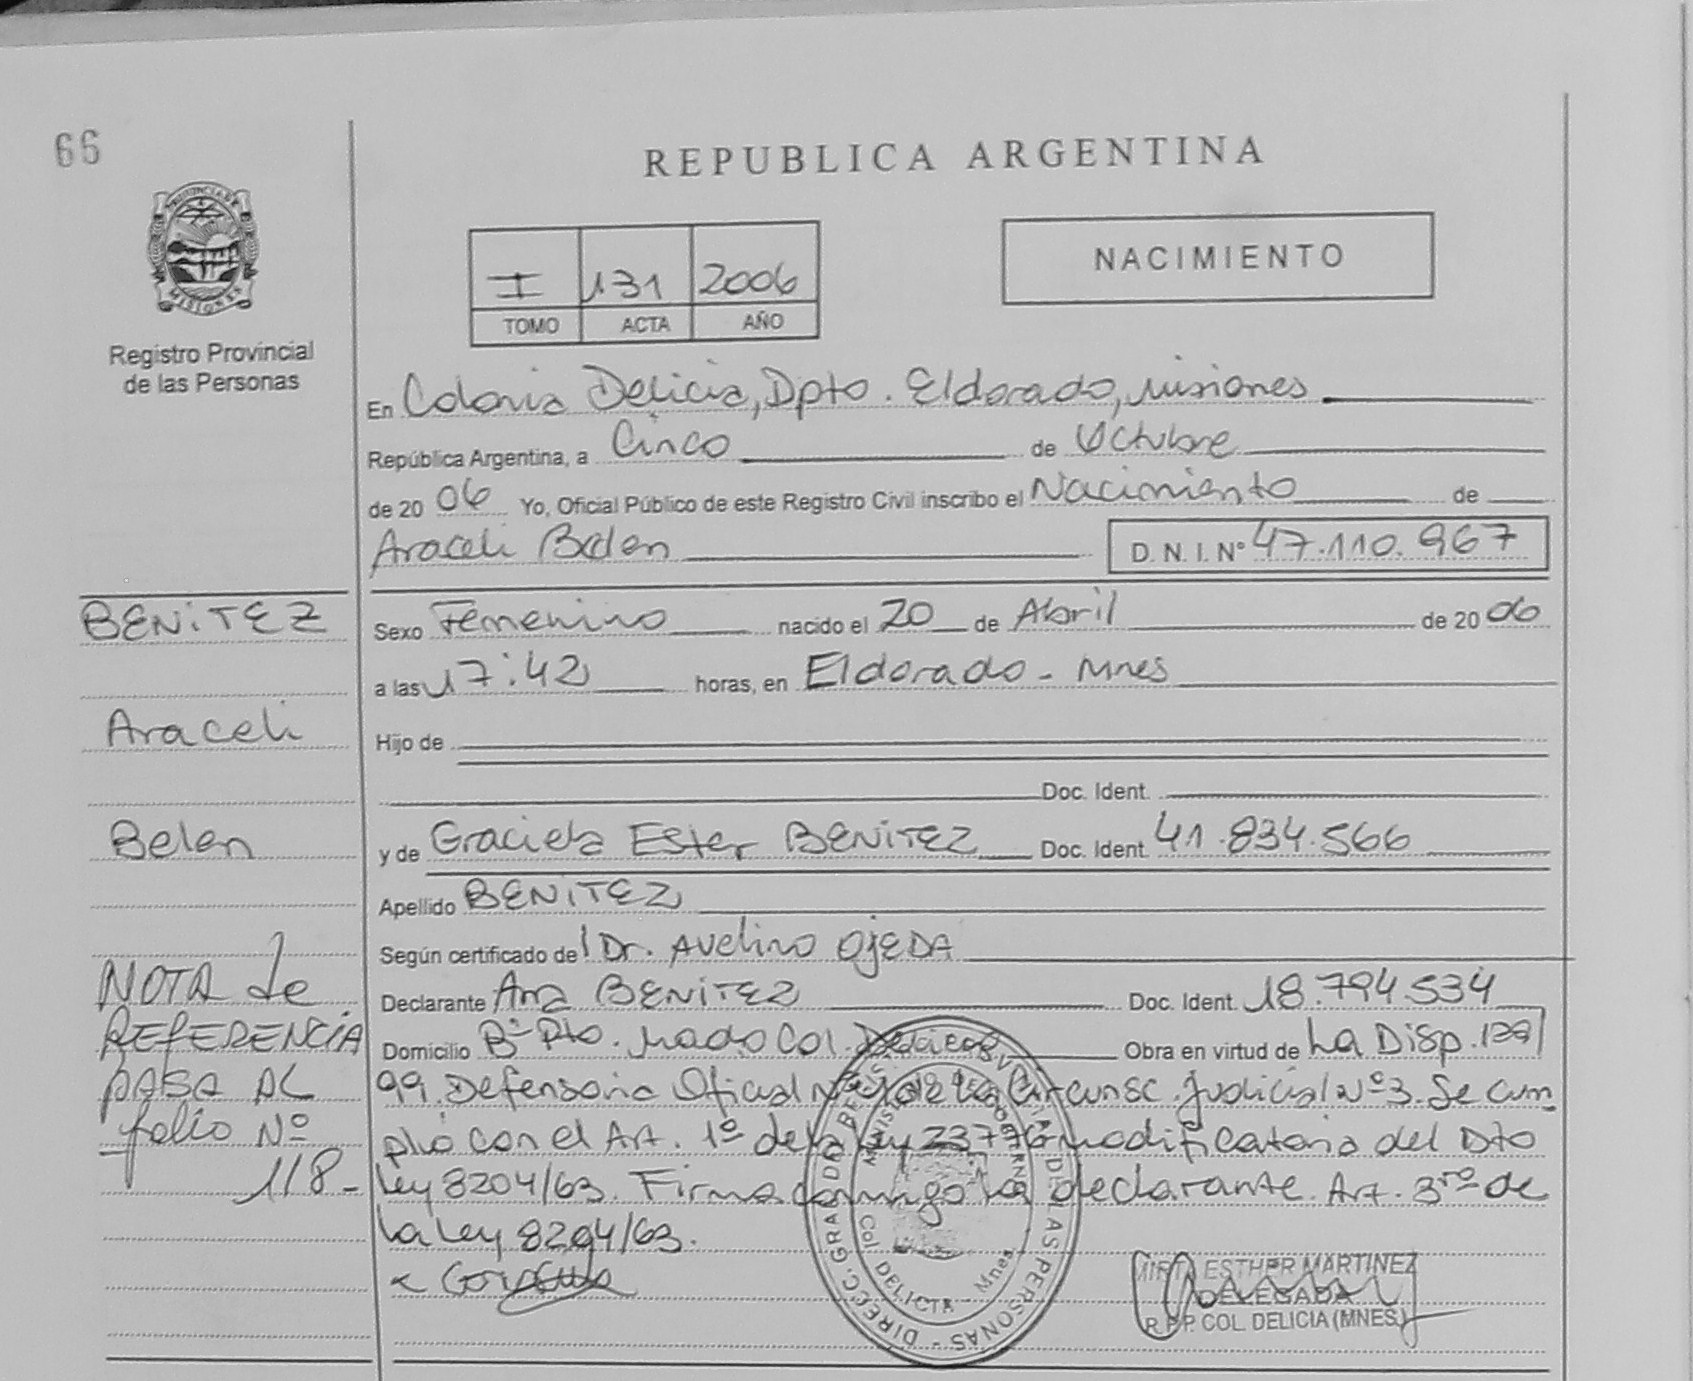 66
REPUBLICA ARGENTINA
PROVINCIA DE
MISIONES
Registro Provincial
de las Personas
I 131 2006
TOMO ACTA AÑO
NACIMIENTO
En Colonia Delicia, Dpto. Eldorado, Misiones
República Argentina, a Cinco de Octubre
de 2006 Yo, Oficial Público de este Registro Civil inscribo el Nacimiento de
Araceli Belen D. N. I. Nº 47.110.967
BENITEZ
Araceli
Belen
NOTA de
REFERENCIA
PASA AL
folio Nº
118-
Sexo Femenino nacido el 20 de Abril de 2006
a las 17:42 horas, en Eldorado - Mnes
Hijo de
Doc. Ident.
y de Graciela Ester BENITEZ Doc. Ident. 41.834.566
Apellido BENITEZ
Según certificado del Dr. Avelino OJEDA
Declarante Ana BENITEZ Doc. Ident. 18.794.534
Domicilio Bº Pto. Mado Col. Delicia Obra en virtud de La Disp.
99. Defensoria Oficial de la Circunsc. Judicial Nº 3. Se cum
plió con el Art. 1º de la Ley 23776 modificatoria del Dto
Ley 8204/63. Firma conmigo la declarante. Art. 3ro de
la Ley 8204/63.
DIRECC. GRAL. DE LAS PERSONAS
MINISTERIO DE GOBIERNO
Col DELICIA - Mnes
MIRTA ESTHER MARTINEZ
DELEGADA
R.P.P. COL. DELICIA (MNES)